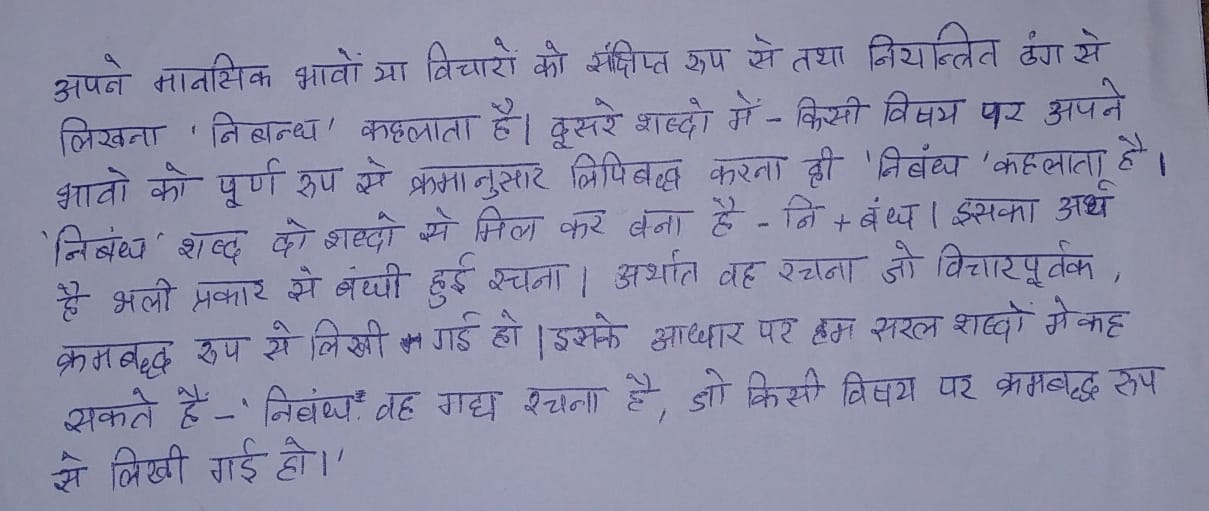 अपने मानसिक भावों या विचारों को संक्षिप्त रूप से तथा नियन्त्रित ढंग से
लिखना 'निबन्ध' कहलाता है। दूसरे शब्दो में - किसी विषय पर अपने
भावो को पूर्ण रूप से क्रमानुसार लिपिबद्ध करना ही 'निबंध' कहलाता है।
'निबंध' शब्द दो शब्दो से मिल कर बना है - नि + बंध। इसका अर्थ
है भली प्रकार से बंधी हुई रचना। अर्थात वह रचना जो विचारपूर्वक,
क्रमबद्ध रूप से लिखी गई हो। इसके आधार पर हम सरल शब्दों मे कह
सकते है - 'निबंध वह गद्य रचना है, जो किसी विषय पर क्रमबद्ध रूप
से लिखी गई हो।'